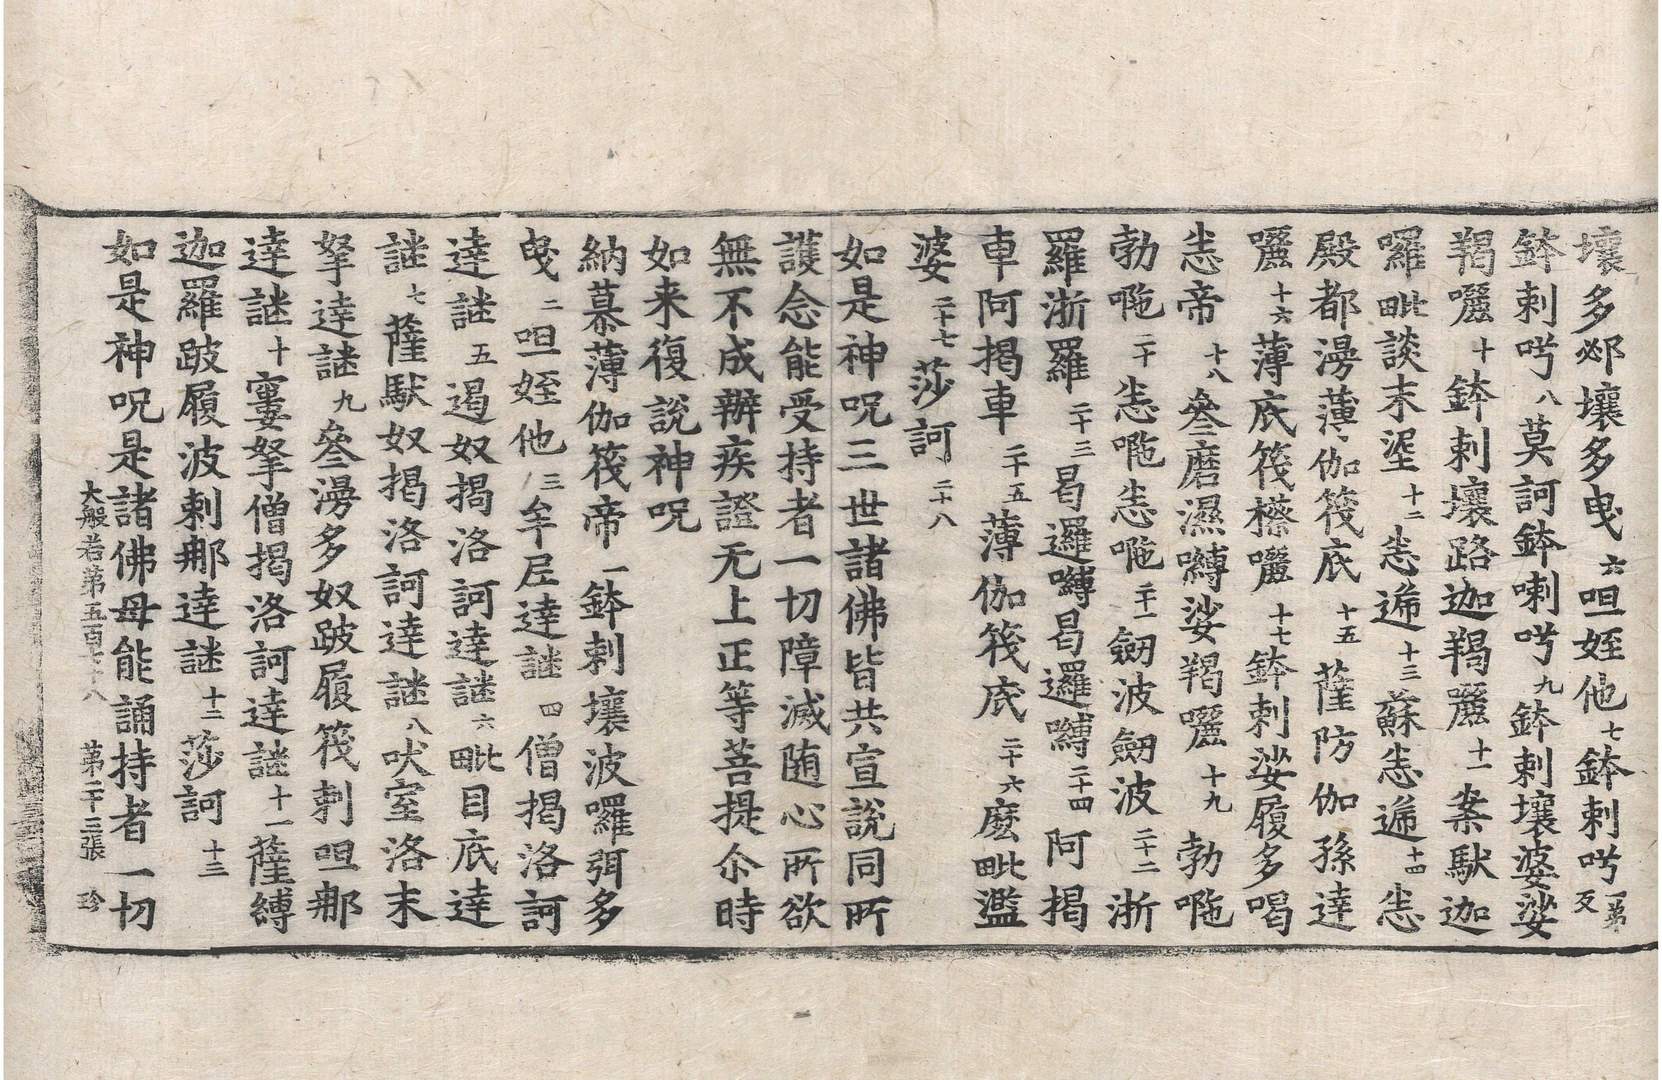 壤多邲壤多曳六呾姪他七鉢剌吽弟夭反
鉢剌吽八莫訶鉢喇吽九鉢剌壤婆娑
羯囇十鉢剌壤路迦羯囇十一案馱迦
囉毗談末埿十二悉遞十三蘇悉遞十四悉
殿都漫薄伽筏底十五薩防伽孫達
囇十六薄底筏㩲囇十七鉢剌娑履多喝
悉帝十八參磨濕嚩娑羯囇十九勃㖿
勃㖿二十悉㖿悉㖿二十一劒波劒波二十二浙
羅浙羅二十三曷邏嚩曷邏嚩二十四阿揭
車阿揭車二十五薄伽筏底二十六麽毗濫
婆二十七莎訶二十八
如是神呪三世諸佛皆共宣說同所
護念能受持者一切障滅隨心所欲
無不成辦疾證无上正等菩提尒時
如来復說神呪
納慕薄伽筏帝一鉢剌壤波囉弭多
曳二呾姪他三牟尼達謎四僧揭洛訶
達謎五遏奴揭洛訶達謎六毗目底達
謎七薩馱奴揭洛訶達謎八吠室洛末
拏達謎九參漫多奴跛履筏剌呾那
達謎十窶拏僧揭洛訶達謎十一薩縛
迦羅跛履波剌那達謎十二莎訶十三
如是神呪是諸佛母能誦持者一切
大般若第五百七十八　第二十三張　珍